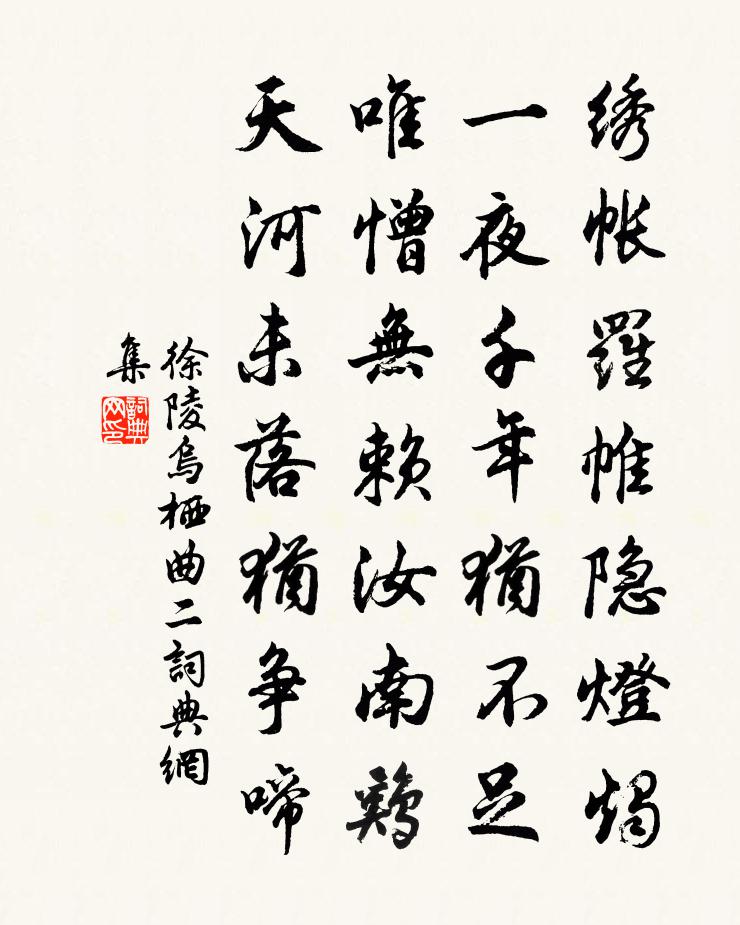 绣帐羅帷隐燈燭
一夜千年猶不足
唯憎無賴汝南鷄
天河未落猶爭啼
徐陵烏栖曲二詞典網
集
詞典網印